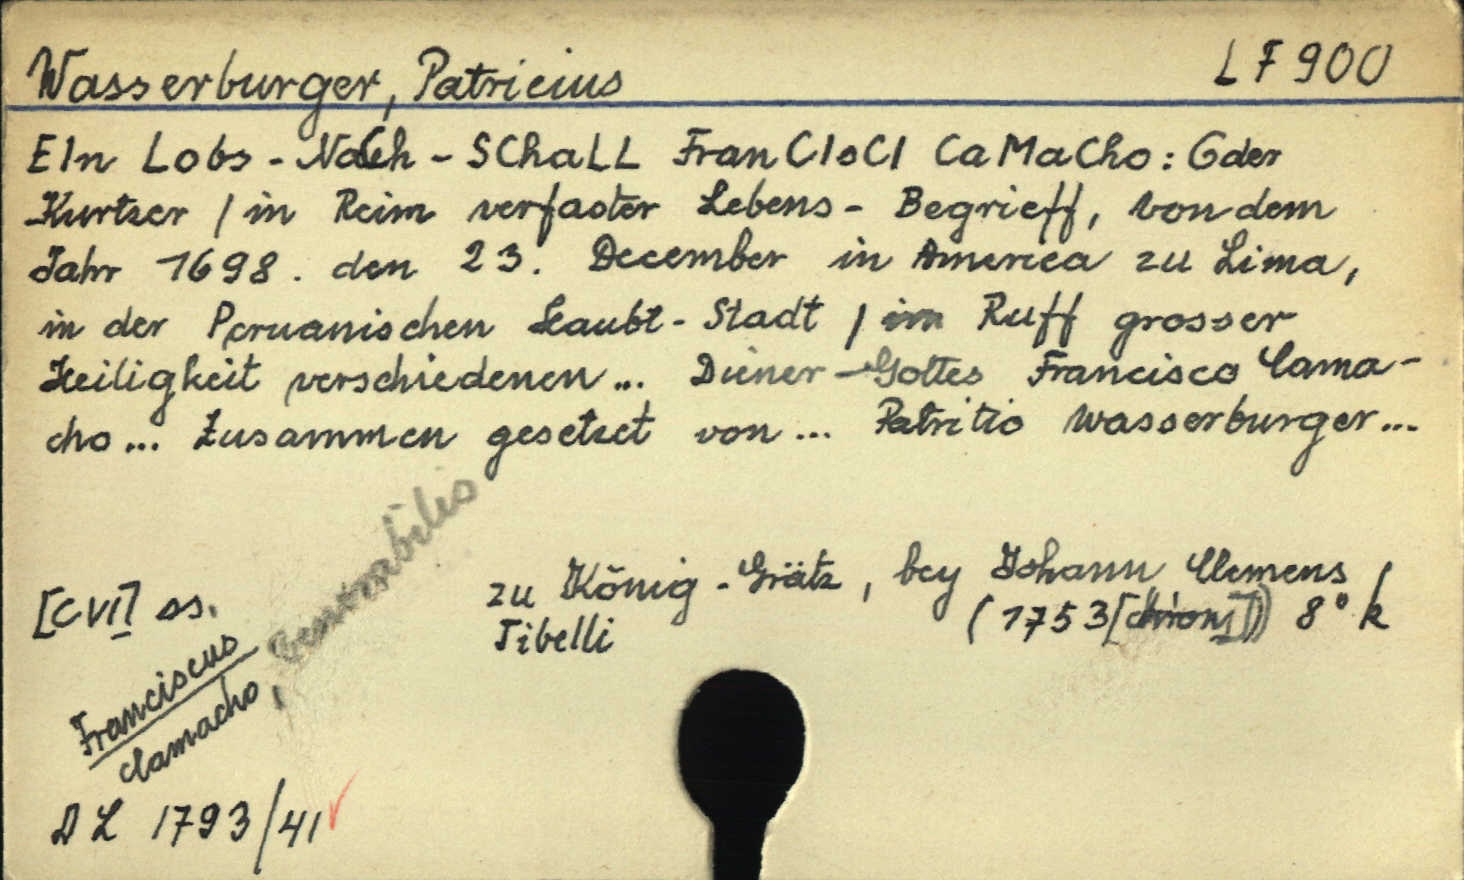 Wasserburger, Patricius
LF 900
EIn Lobs-NaCh-SChaLL FranCIsCI CaMaCho: Oder
Kurtzer / in Reim verfaster Lebens-Begrieff, von dem
Jahr 1698. den 23. December in America zu Lima,
in der Peruanischen Haubt-Stadt / im Ruff grosser
Heiligkeit verschiedenen ... Diener-Gottes Francisco Cama-
cho ... Zusammen gesetzet von ... Patritio Wasserburger ...
zu König-Grätz, bey Johann Clemens
Tibelli (1753 [chron]) 8° k
[CVI] ss.
Franciscus
Camacho, Venerabilis
DL 1793/41